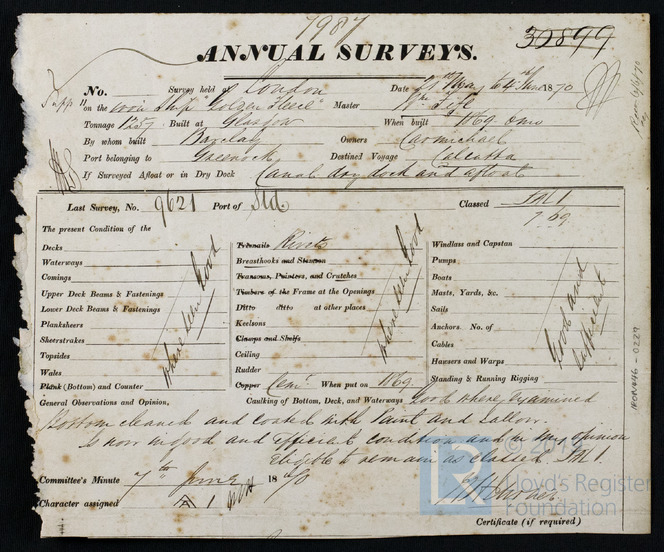 7987
ANNUAL SURVEYS.
32899
No. Survey held at London Date 21st May to 4th June 1870
on the iron Ship "Golden Fleece" Master
Tonnage 1257 Built at Glasgow When built 1869
By whom built Barclay Owners Carmichael
Port belonging to Greenock Destined Voyage Calcutta
If Surveyed Afloat or in Dry Dock Canal dry dock and afloat
Last Survey, No. 9621 Port of Classed
7.69
The present Condition of the
Decks
Waterways
Comings
Upper Deck Beams & Fastenings
Lower Deck Beams & Fastenings
Planksheers
Sheerstrakes
Topsides
Wales
Plank (Bottom) and Counter
Where seen Good
Treenails Rivets
Breasthooks and Stemson
Transoms, Pointers, and Crutches
Timbers of the Frame at the Openings
Ditto ditto at other places
Keelsons
Clamps and Shelfs
Ceiling
Rudder
Copper Cemt When put on 1869
Where seen Good
Windlass and Capstan
Pumps
Boats
Masts, Yards, &c.
Sails
Anchors. No. of
Cables
Hawsers and Warps
Standing & Running Rigging
Good and Sufficient
General Observations and Opinion, Caulking of Bottom, Deck, and Waterways Good where examined
Bottom cleaned and coated with Paint and Tallow.
Is now in good and efficient condition and in my opinion
Eligible to remain as classed
Committee's Minute 7th June 1870
Character assigned A 1
Certificate (if required)
IRON446-0227
Lloyd's Register
Foundation